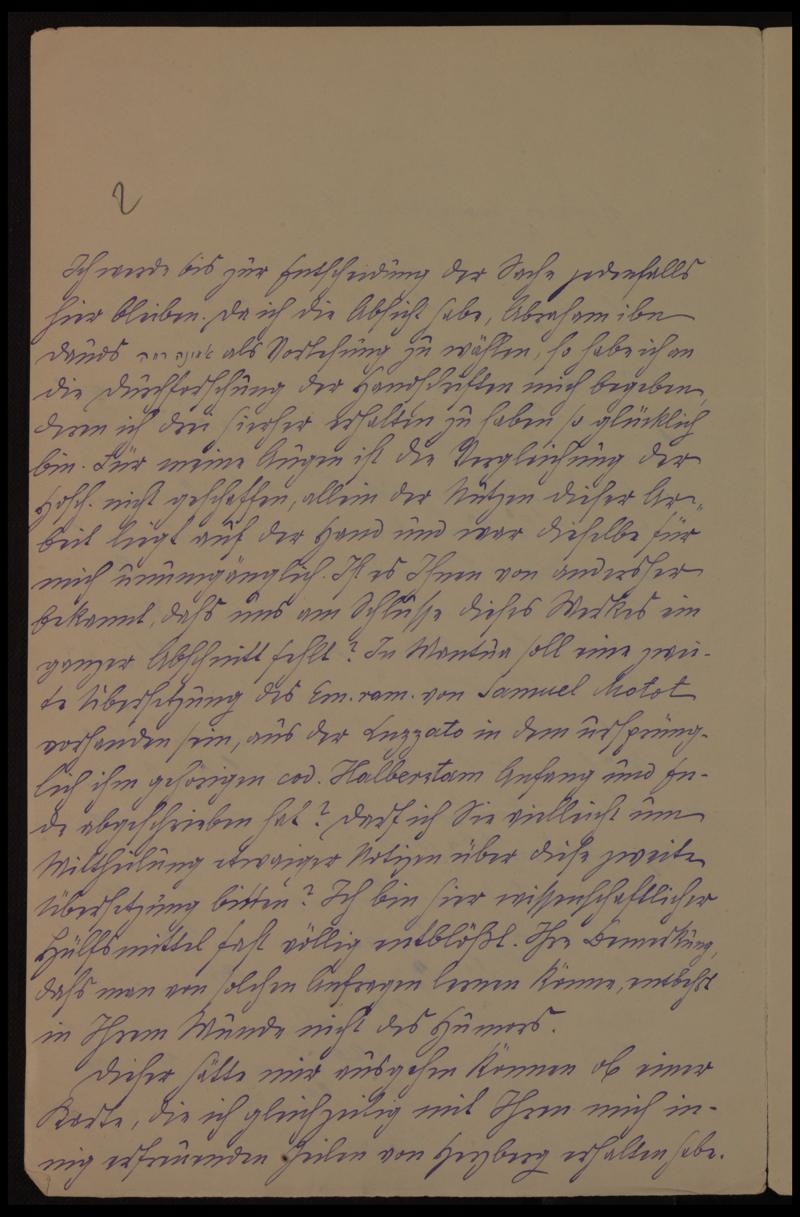 2
Ich werde bis zur Entscheidung der Sache jedenfalls
hier bleiben. Da ich die Absicht habe, Abraham ibn
Dauds אמונה רמה als Vorlesung zu wählen, so habe ich an
die Durchforschung der Handschriften mich begeben,
deren ich drei hierher erhalten zu haben so glücklich
bin. Für meine Augen ist die Vergleichung der
Hdsch. nicht geschaffen, allein der Nutzen dieser Ar-
beit liegt auf der Hand und war dieselbe für
mich unumgänglich. Ist es Ihnen von andersher
bekannt, dass uns am Schlusse dieses Werkes ein
ganzer Abschnitt fehlt? In Mantua soll eine zwei-
te Übersetzung des Em. ram. von Samuel Motot
vorhanden sein, aus der Luzzato in dem ursprüng-
lich ihm gehörigen cod. Halberstam Anfang und En-
de abgeschrieben hat? Darf ich Sie vielleicht um
Mittheilung etwaiger Notizen über diese zweite
Übersetzung bitten? Ich bin hier wissenschaftlicher
Hülfsmittel fast völlig entblößt. Ihre Bemerkung,
dass man von solchen Anfragen lernen könne, entbehrt
in Ihrem Munde nicht des Humors.
Dieser hätte mir ausgehen können ob einer
Karte, die ich gleichzeitig mit Ihren mich in-
nig erfreuenden Zeilen von Herzberg erhalten habe.